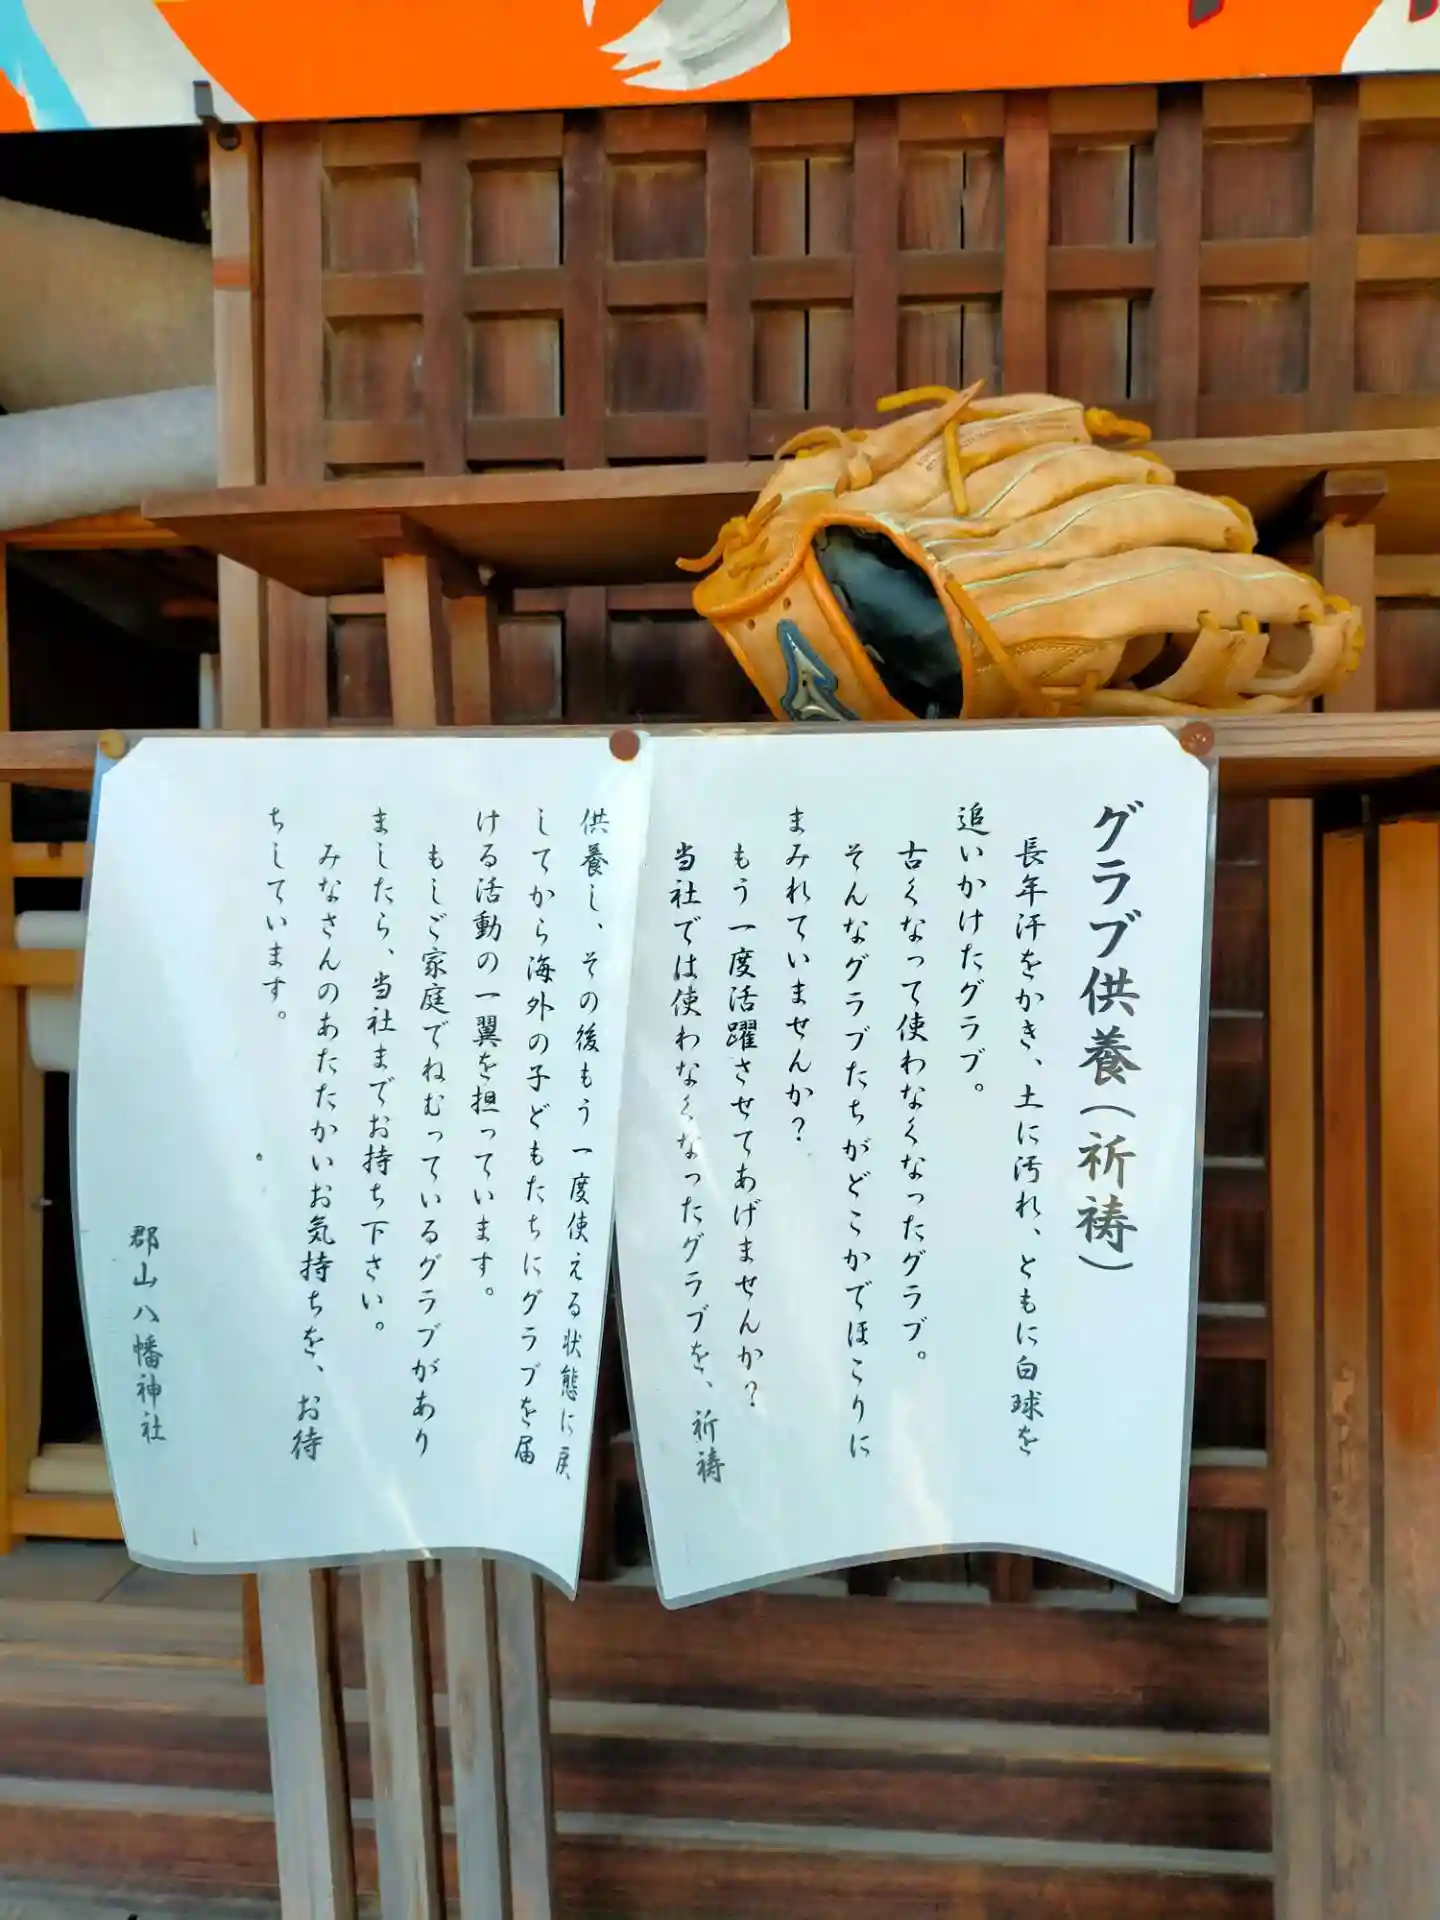 グラブ供養(祈祷)
長年汗をかき、土に汚れ、ともに白球を
追いかけたグラブ。
古くなって使わなくなったグラブ。
そんなグラブたちがどこかでほこりに
まみれていませんか?
もう一度活躍させてあげませんか?
当社では使わなくなったグラブを、祈祷
供養し、その後もう一度使える状態に戻
してから海外の子どもたちにグラブを届
ける活動の一翼を担っています。
もしご家庭でねむっているグラブがあり
ましたら、当社までお持ち下さい。
みなさんのあたたかいお気持ちを、お待
ちしています。
郡山八幡神社